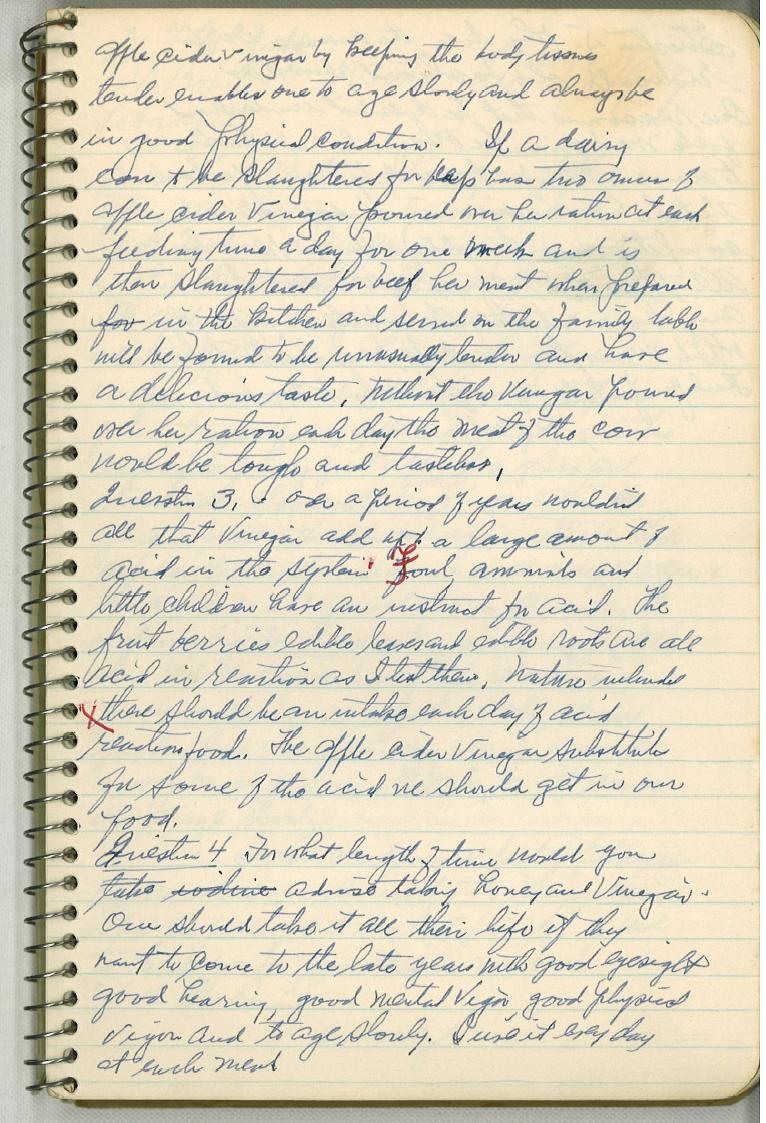 apple cider vinegar by keeping the body tissues
tender enables one to age slowly and always be
in good physical condition. If a dairy
cow to be slaughtered for has two ounces of
apple cider vinegar poured over her ration at each
feeding time a day for one week and is
then slaughtered for beef her meat when prepared
for in the kitchen and served on the family table
will be found to be unusually tender and have
a delicious taste. Without the vinegar poured
over her ration each day the meat of the cow
would be tough and tasteless.
Question 3. over a period of years wouldn't
all that vinegar add up to a large amount of
acid in the system Fowl animals and
little children have an instinct for acid. The
fruit berries edible leaves and edible roots are all
acid in reaction as I test them. Nature intended
X there should be an intake each day of acid
reaction food. The apple cider vinegar substitute
for some of the acid we should get in our
food.
Question 4 For what length of time would you
take iodine advise taking honey and vinegar.
One should take it all their life if they
want to come to the late years with good eyesight
good hearing, good mental vigor good physical
vigor and to age slowly. I use it every day
at each meal